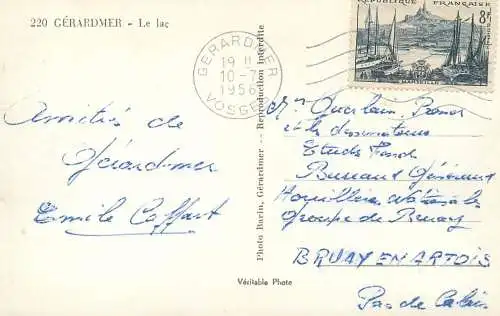 220 GÉRARDMER - Le lac
RÉPUBLIQUE FRANÇAISE
8F
MARSEILLE
GERARDMER
19 H
10-7
1956
VOSGES
Amitiés de
Gérardmer
Emile Coffart
Photo Barin, Gérardmer -- Reproduction interdite
Mr
et les dessinateurs
Etude Fond
Bureau Général
Houillères Nationales
Groupe de Bruay
BRUAY EN ARTOIS
Pas de Calais
Véritable Photo